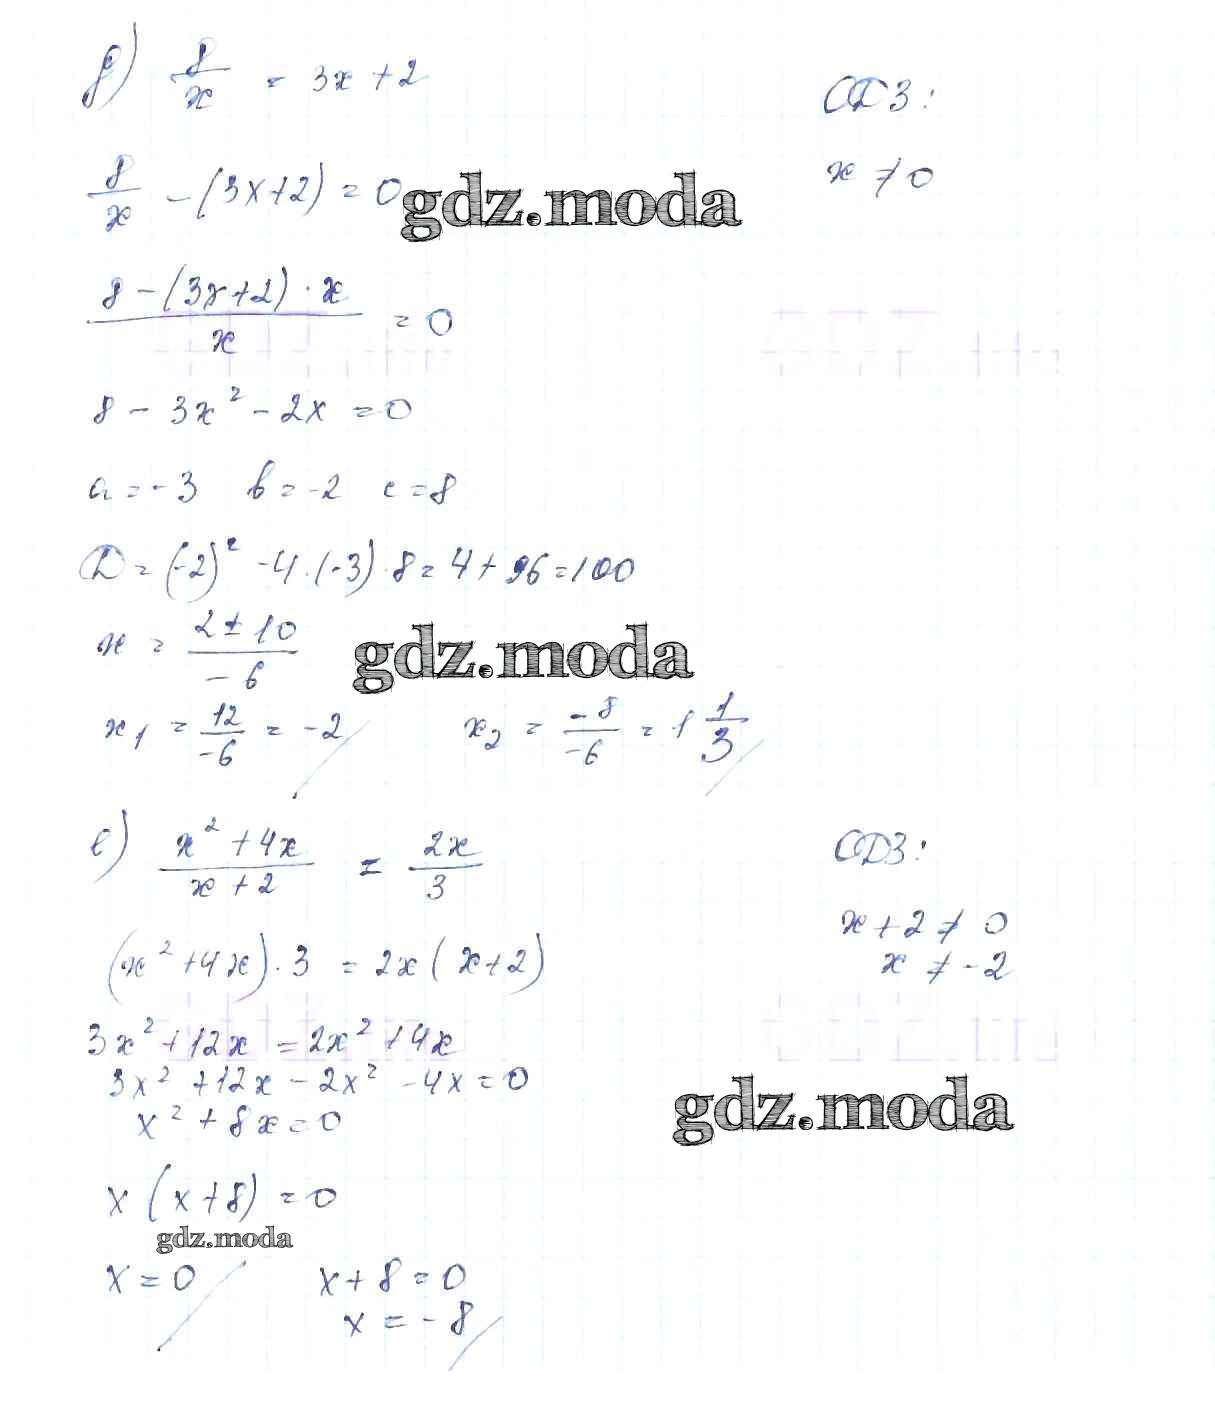 д) 8/x = 3x + 2
ОДЗ:
8/x - (3x+2) = 0
x ≠ 0
gdz.moda
(8 - (3x+2) · x)/x = 0
8 - 3x² - 2x = 0
a = -3 b = -2 c = 8
D = (-2)² - 4·(-3)·8 = 4 + 96 = 100
x = (2 ± 10)/-6
gdz.moda
x₁ = 12/-6 = -2 x₂ = -8/-6 = 1 1/3
е) (x² + 4x)/(x + 2) = 2x/3
ОДЗ:
x + 2 ≠ 0
(x² + 4x)·3 = 2x(x+2)
x ≠ -2
3x² + 12x = 2x² + 4x
3x² + 12x - 2x² - 4x = 0
x² + 8x = 0
gdz.moda
x(x+8) = 0
gdz.moda
x = 0 x + 8 = 0
x = -8